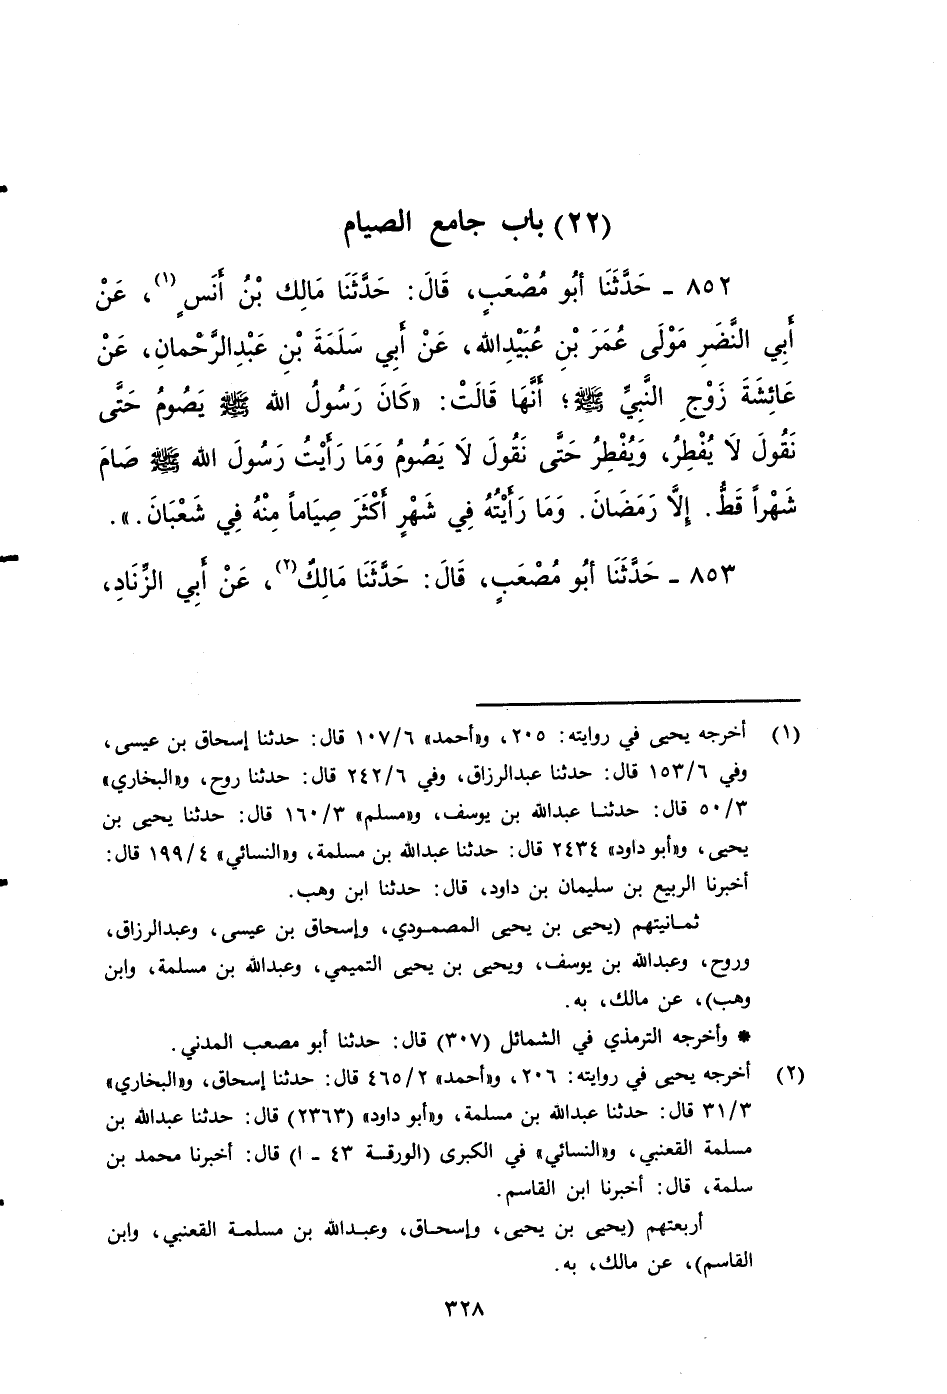 (٢٢) باب جامع الصيام
٨٥٢ ـ حَدَّثَنَا أبُو مُصْعَبٍ، قَالَ: حَدَّثَنَا مَالِك بْنُ أَنَسٍ(١)، عَنْ
أَبِي النَّضَرِ مَوْلَى عُمَرَ بْنِ عُبَيْدِالله، عَنْ أَبِي سَلَمَةَ بْنِ عَبْدِالرَّحْمانِ، عَنْ
عَائِشَةَ زَوْجِ النَّبِيِّ ﷺ؛ أَنَّهَا قَالَتْ: «كَانَ رَسُولُ الله ﷺ يَصُومُ حَتَّى
نَقُولَ لَا يُفْطِرُ، وَيُفْطِرُ حَتَّى نَقُولَ لَا يَصُومُ وَمَا رَأَيْتُ رَسُولَ الله ﷺ صَامَ
شَهْراً قَطُّ. إِلَّا رَمَضَانَ. وَمَا رَأَيْتُهُ فِي شَهْرٍ أَكْثَرَ صِيَاماً مِنْهُ فِي شَعْبَانَ.».
٨٥٣ ـ حَدَّثَنَا أبُو مُصْعَبٍ، قَالَ: حَدَّثَنَا مَالِكٌ(٢)، عَنْ أَبِي الزِّنَادِ،
(١) أخرجه يحيى في روايته: ٢٠٥، و«أحمد» ١٠٧/٦ قال: حدثنا إسحاق بن عيسى،
وفي ١٥٣/٦ قال: حدثنا عبدالرزاق، وفي ٢٤٢/٦ قال: حدثنا روح، و«البخاري»
٥٠/٣ قال: حدثنا عبدالله بن يوسف، و«مسلم» ١٦٠/٣ قال: حدثنا يحيى بن
يحيى، و«أبو داود» ٢٤٣٤ قال: حدثنا عبدالله بن مسلمة، و«النسائي» ١٩٩/٤ قال:
أخبرنا الربيع بن سليمان بن داود، قال: حدثنا ابن وهب.
ثمانيتهم (يحيى بن يحيى المصمودي، وإسحاق بن عيسى، وعبدالرزاق،
وروح، وعبدالله بن يوسف، ويحيى بن يحيى التميمي، وعبدالله بن مسلمة، وابن
وهب)، عن مالك، به.
* وأخرجه الترمذي في الشمائل (٣٠٧) قال: حدثنا أبو مصعب المدني.
(٢) أخرجه يحيى في روايته: ٢٠٦، و«أحمد» ٤٦٥/٢ قال: حدثنا إسحاق، و«البخاري»
٣١/٣ قال: حدثنا عبدالله بن مسلمة، و«أبو داود» (٢٣٦٣) قال: حدثنا عبدالله بن
مسلمة القعنبي، و«النسائي» في الكبرى (الورقة ٤٣ ـ ا) قال: أخبرنا محمد بن
سلمة، قال: أخبرنا ابن القاسم.
أربعتهم (يحيى بن يحيى، وإسحاق، وعبدالله بن مسلمة القعنبي، وابن
القاسم)، عن مالك، به.
٣٢٨